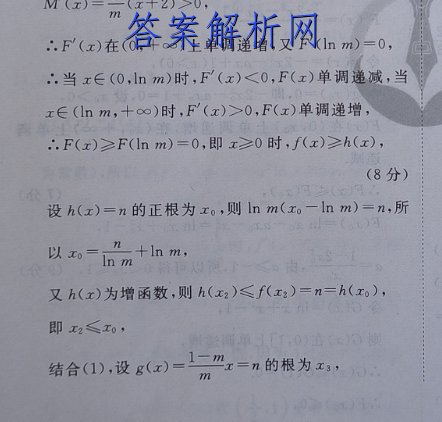 M′(x)=—/m (x+2)>0,
答案解析网
∴F′(x)在(0,+∞)上单调递增,又F′(ln m)=0,
∴当x∈(0,ln m)时,F′(x)<0,F(x)单调递减,当
x∈(ln m,+∞)时,F′>0,F(x)单调递增,
∴F(x)≥F(ln m)=0,即x≥0时,f(x)≥h(x),
(8分)
设h(x)=n的正根为x₀,则ln m(x₀-ln m)=n,所
以x₀=n/ln m+ln m,
又h(x)为增函数,则h(x₂)≤f(x₂)=n=h(x₀),
即x₂≤x₀,
结合(1),设g(x)=(1-m)/m x=n的根为x₃,